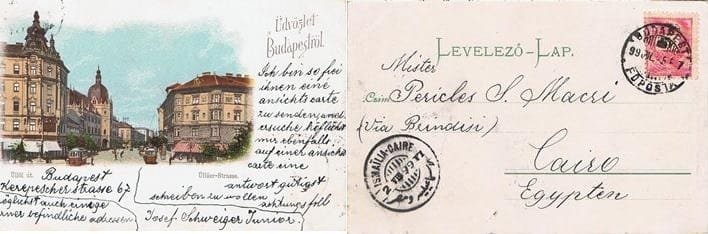 Üdvözlet
Budapestről.
Ich bin so frei
ihnen eine
ansichts carte
zu senden, und
ersuche höflichst
mir ebenfalls
auf einer ansichts
carte eine
antwort gütigst
schreiben zu wollen
achtungsvoll
Josef Schweiger Junior.
Üllői út.
Üllőer-Strasse.
Budapest
Kerepescher strasse 67
möglichst auch einige
ihrer befindliche adressen
LEVELEZŐ-LAP.
Mister
Pericles S. Macri
(Via Brindisi)
Cairo
Egypten
BUDAPEST
FŐPOSTA
ISMAILIA-CAIRE